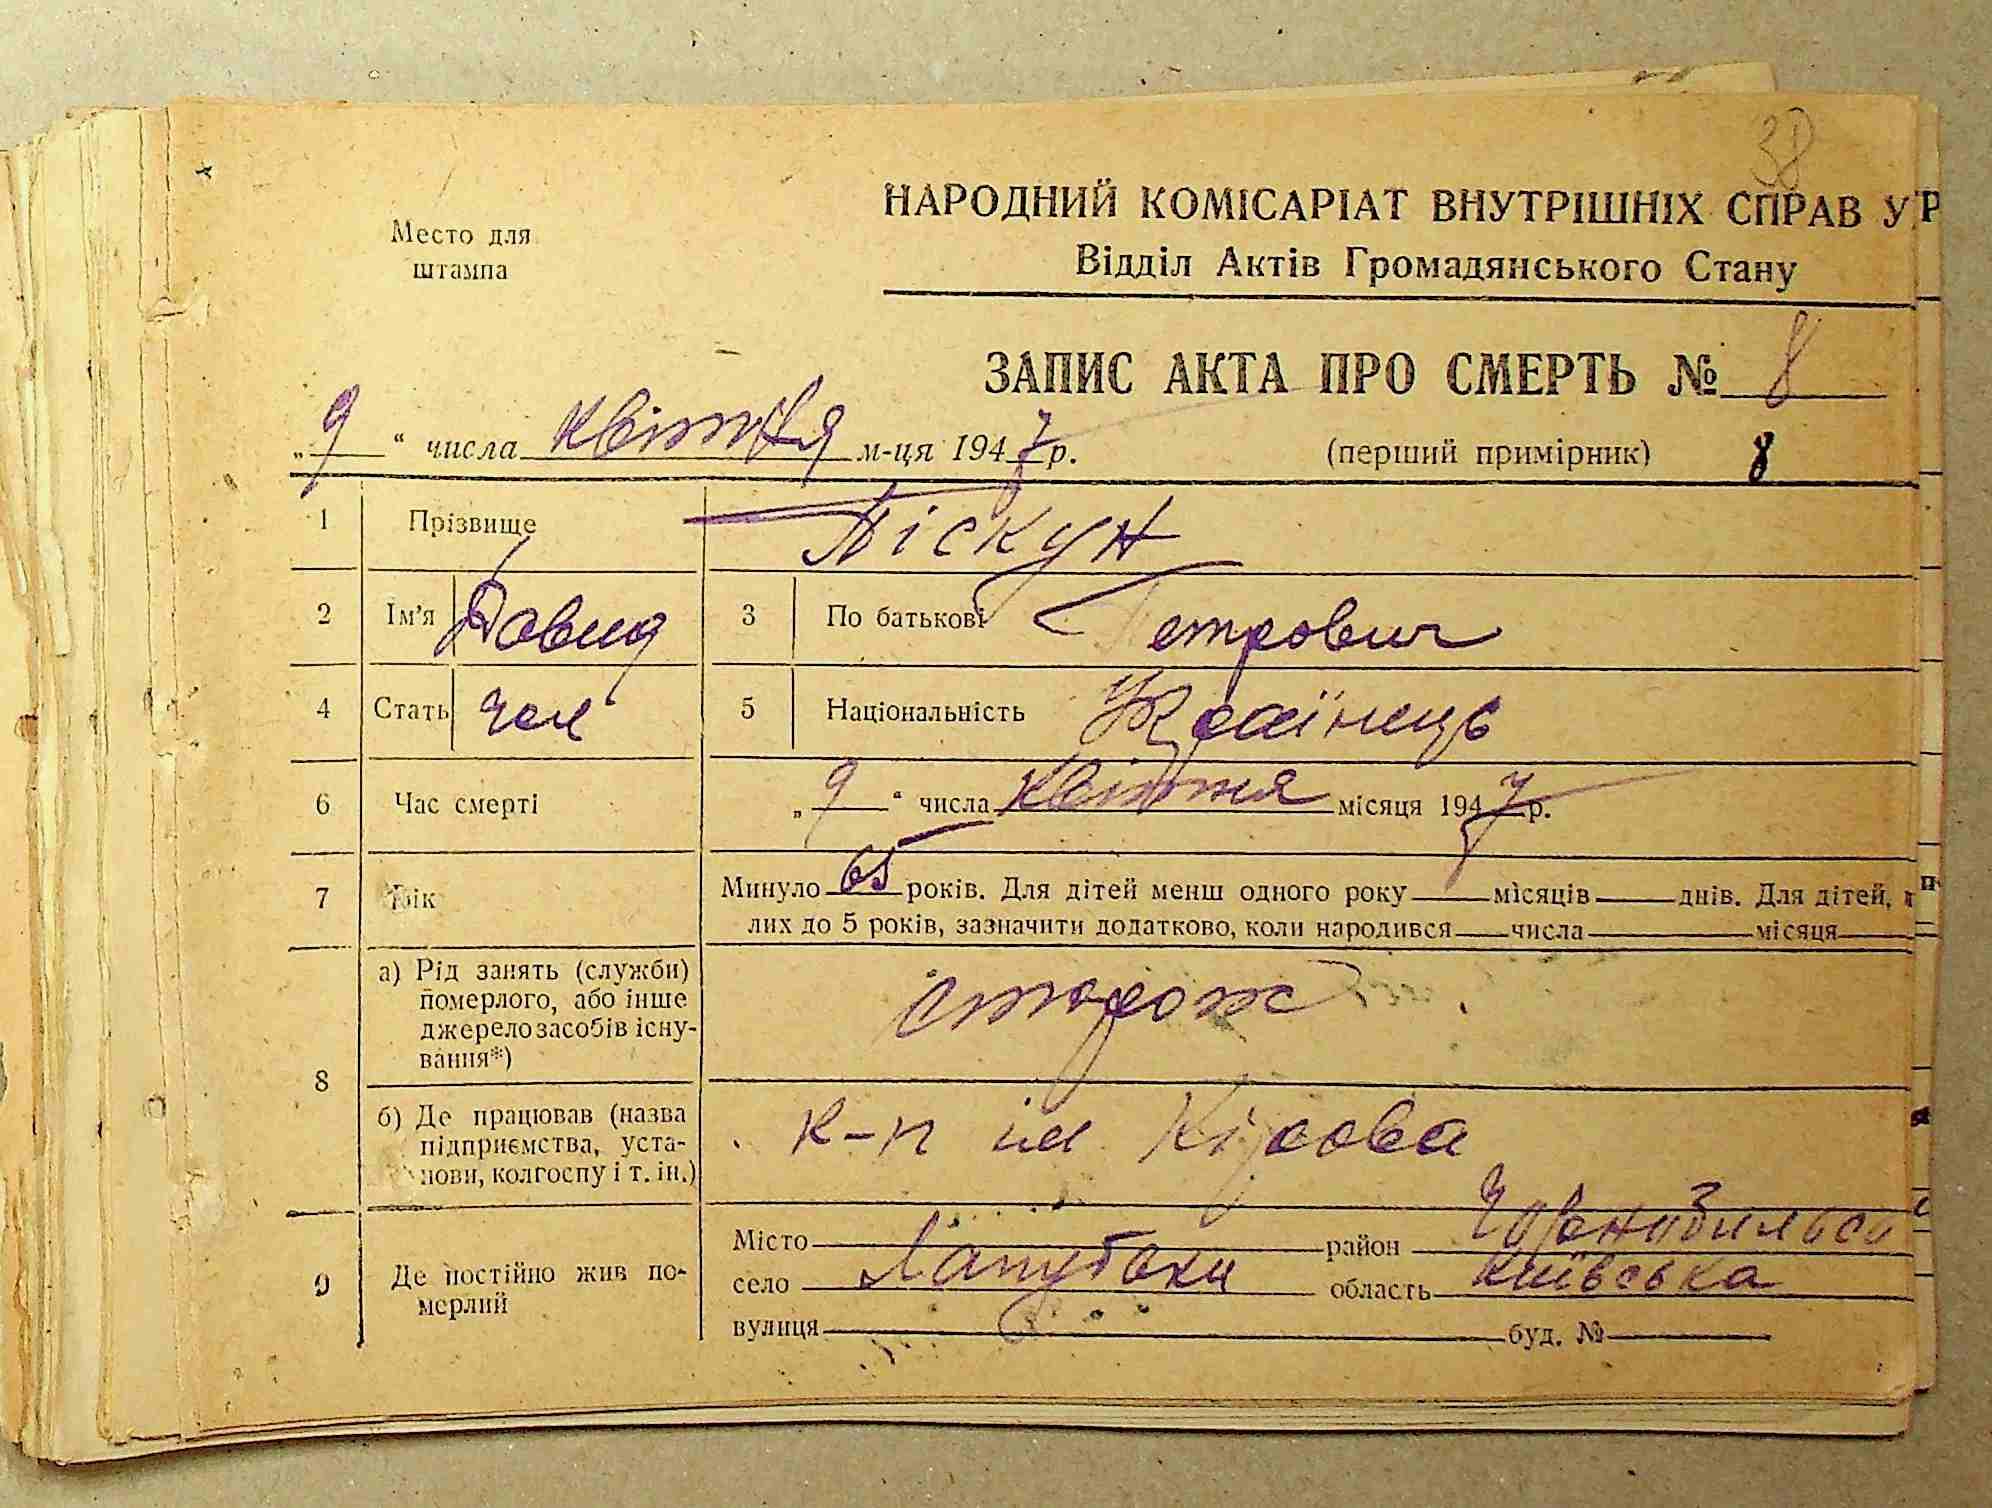 38
Место для
штампа
НАРОДНИЙ КОМІСАРІАТ ВНУТРІШНІХ СПРАВ УР
Відділ Актів Громадянського Стану
ЗАПИС АКТА ПРО СМЕРТЬ № 8
„9“ числа квітня м-ця 1947 р. (перший примірник) 8
1 Прізвище Піскун
2 Ім'я Давид 3 По батькові Петрович
4 Стать чол 5 Національність Українець
6 Час смерті „9“ числа квітня місяця 1947 р.
7 Вік Минуло 65 років. Для дітей менш одного року місяців днів. Для дітей,
лих до 5 років, зазначити додатково, коли народився числа місяця
8 а) Рід занять (служби)
померлого, або інше
джерело засобів існу-
вання*) сторож
б) Де працював (назва
підприємства, уста-
нови, колгоспу і т. ін.) к-п ім Кірова
9 Де постійно жив по-
мерлий
Місто район
село область Київська
вулиця буд. №